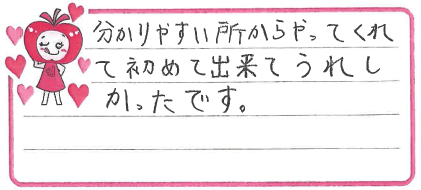 分かりやすい所からやってくれ
て初めて出来てうれし
かったです。